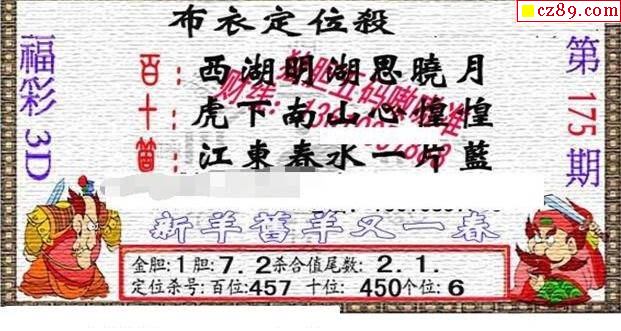 cz89.com
布衣定位殺
福彩3D
第175期
百：西湖明湖思曉月
十：虎下南山心惶惶
箇：江東春水一片藍
新羊舊羊又一春
金胆：1胆：7.2杀合值尾数：2.1.
定位杀号：百位：457 十位：450个位：6